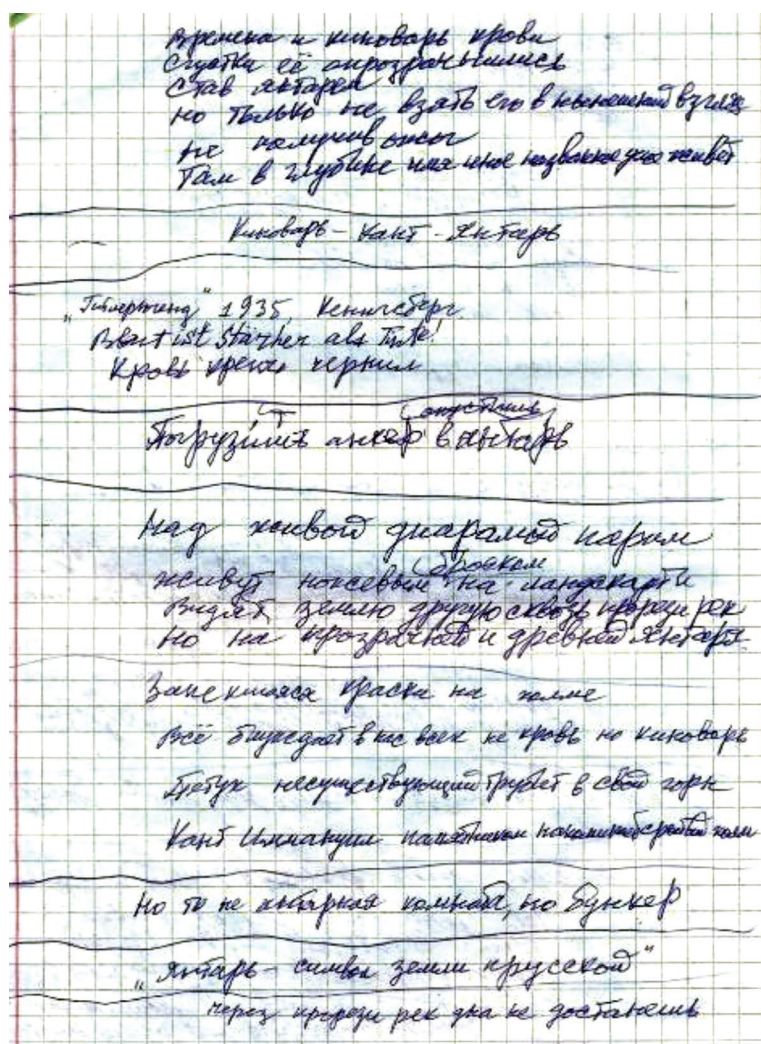 Времена и киноварь крови
Сгустки её опрозрачнились
Став янтарём
но только не взять его в нынешний взгляд
не получив осы
Там в глубине имя иное название уже живёт
Киноварь – Кант – Янтарь
„Гитлерюгенд" 1935, Кенигсберг
Blut ist Stärker als Tinte!
Кровь крепче чернил
опустить
Погрузить анкер в янтарь
Над живой диарамой парим
бровкам
живут на ландскарти
Видят землю другую сквозь прорези рек
но на прозрачной и древней Янтаря
Запекшаяся краска на холме
Всё блуждает в нас всех не кровь но киноварь
Петух несуществующий трубит в свой горн
Кант Иммануил памятником
Но то не янтарная комната, но бункер
„Янтарь – символ земли прусской"
через прорези рек дна не достанешь